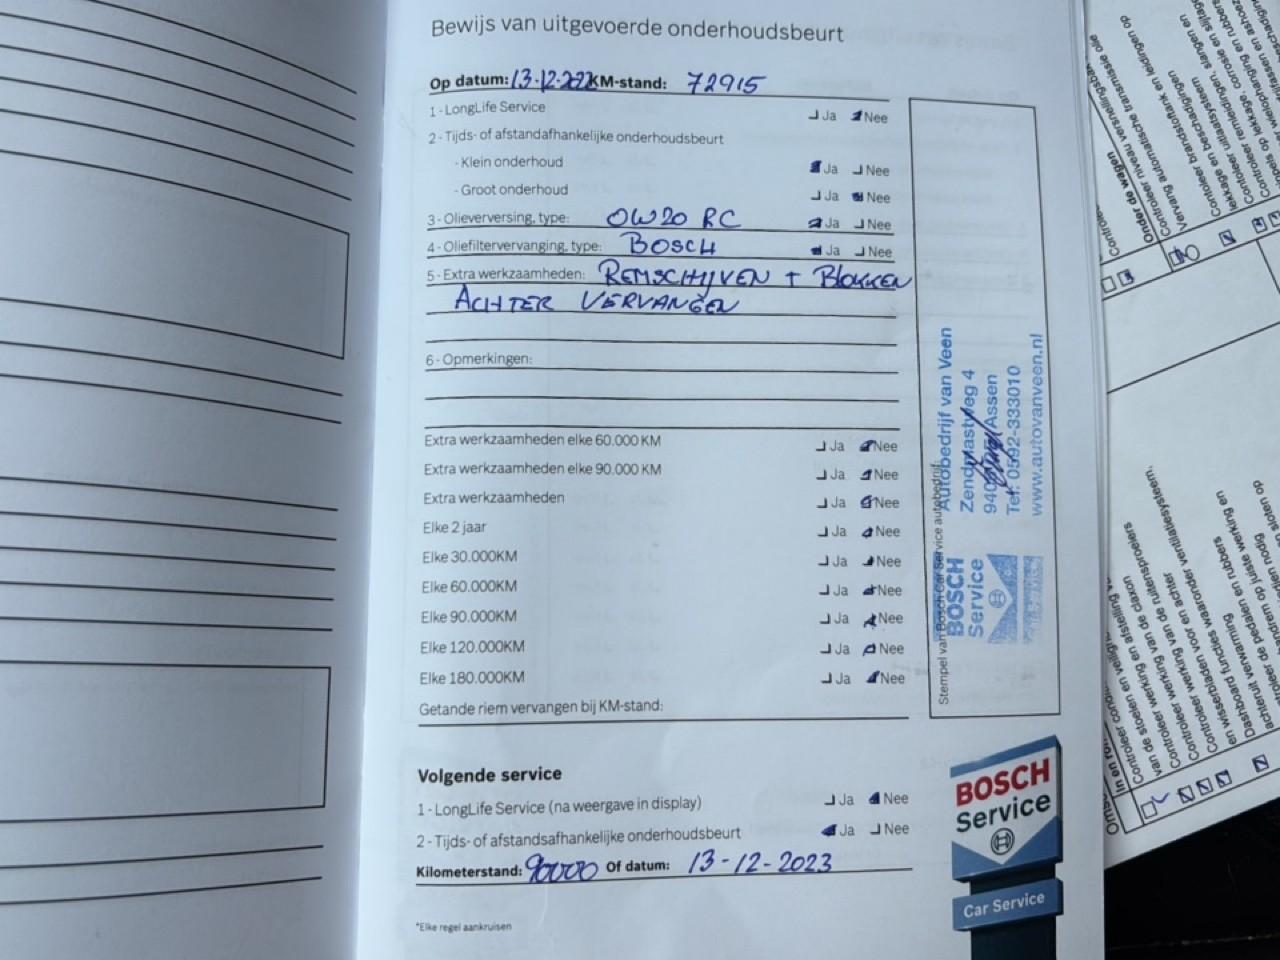 Bewijs van uitgevoerde onderhoudsbeurt
Op datum: 13-12-2022 KM-stand: 72915
1 - LongLife Service Ja Nee
2 - Tijds- of afstandafhankelijke onderhoudsbeurt
- Klein onderhoud Ja Nee
- Groot onderhoud Ja Nee
3 - Olieverversing, type: OW20 RC Ja Nee
4 - Oliefiltervervanging, type: BOSCH Ja Nee
5 - Extra werkzaamheden: REMSCHIJVEN + BLOKKEN
ACHTER VERVANGEN
6 - Opmerkingen:
Extra werkzaamheden elke 60.000 KM Ja Nee
Extra werkzaamheden elke 90.000 KM Ja Nee
Extra werkzaamheden Ja Nee
Elke 2 jaar Ja Nee
Elke 30.000KM Ja Nee
Elke 60.000KM Ja Nee
Elke 90.000KM Ja Nee
Elke 120.000KM Ja Nee
Elke 180.000KM Ja Nee
Getande riem vervangen bij KM-stand:
Stempel van Bosch Car Service autobedrijf:
BOSCH
Service
Autobedrijf van Veen
Assen
Tel: 0592-333010
www.autovanveen.nl
Volgende service
1 - LongLife Service (na weergave in display) Ja Nee
2 - Tijds- of afstandsafhankelijke onderhoudsbeurt Ja Nee
Kilometerstand: 90000 Of datum: 13-12-2023
*Elke regel aankruisen
BOSCH
Service
Car Service
Onder de wagen
Controleer niveau versnellingsbak
Vervang automatische transmissie olie
Controleer brandstoftank en leidingen op
lekkage en beschadigingen
Controleer uitlaatsysteem
In en
van de stoelen en
Controleer werking en afstelling
Controleer werking van de claxon
Controleer werking van de ruitensproeiers
en wisserbladen voor en achter
Dashboard functies waaronder ventilatiesysteem,
achteruit verwarming
Controleer de pedalen en rubbers
op juiste werking en